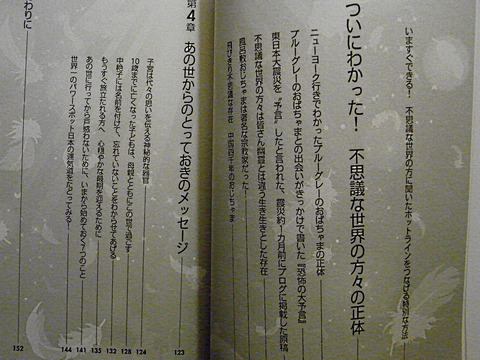 いますぐできる! 不思議な世界の方に聞いたホットラインをつなげる特別な方法
ついにわかった! 不思議な世界の方々の正体
ニューヨーク行きでわかったブルーグレーのおばちゃまの正体
ブルーグレーのおばちゃまとの出会いがきっかけで書いた『恐怖の大予言』
東日本大震災を“予言”したと言われた、震災約1カ月前にブログに掲載した原稿
不思議な世界の方々は皆さん幽霊とは違う生き生きとした存在
風呂敷おじちゃまは著名な宗教家だった
不思議な存在 中国四千年のおじちゃま
第4章 あの世からのとっておきのメッセージ 123
子宮は代々の思いを伝える神秘的な器官 124
10歳までに亡くなった子どもは、母親とともにこの世で過ごす 128
中絶子には名前を付けて、忘れていないことをわからせてあげる 132
もうすぐ旅立たれる方へ 心穏やかな最期を迎えるために 135
あの世に行ってから戸惑わないために、いまから始めておく7つのこと 141
世界一のパワースポット日本の運気道をたどってみる! 144
わりに 152